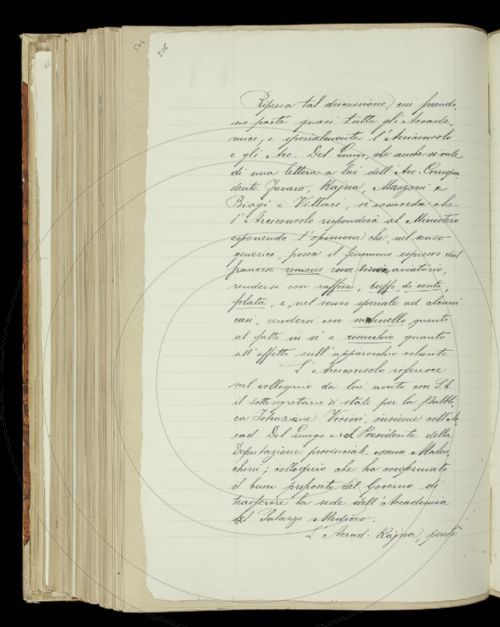 504
506
Ripresa tal discussione, cui prendo-
no parte quasi tutti gli Accade-
mici, e specialmente l'Arciconsolo
e gli Acc. Del Lungo, che anche si vale
di una lettera a lui dell'Acc. Corrispon
dente Favaro, Rajna, Mazzoni e
Biagi e Villari, si concorda che
l'Arciconsolo risponderà al Ministero
esponendo l'opinione che, nel senso
generico, possa il fenomeno espresso dal
francese remous come termine aviatorio,
rendersi con raffica, buffo di vento,
folata, e, nel senso speciale ad alcuni
casi, rendersi con mulinello quanto
al fatto in sè e risucchio quanto
all'effetto sull'apparecchio volante.
L'Arciconsolo riferisce
sul colloquio da lui avuto con S. E.
il sottosegretario di stato per la Pubbli,
ca Istruzione Vicini, insieme coll'Ac
cad. Del Lungo e col Presidente della
Deputazione provinciale comm. Malen,
chini; colloquio che ha confermato
il buon proposito del Governo di
trasferire la sede dell'Accademia
al Palazzo Mediceo.
L'Accad. Rajna, perchè